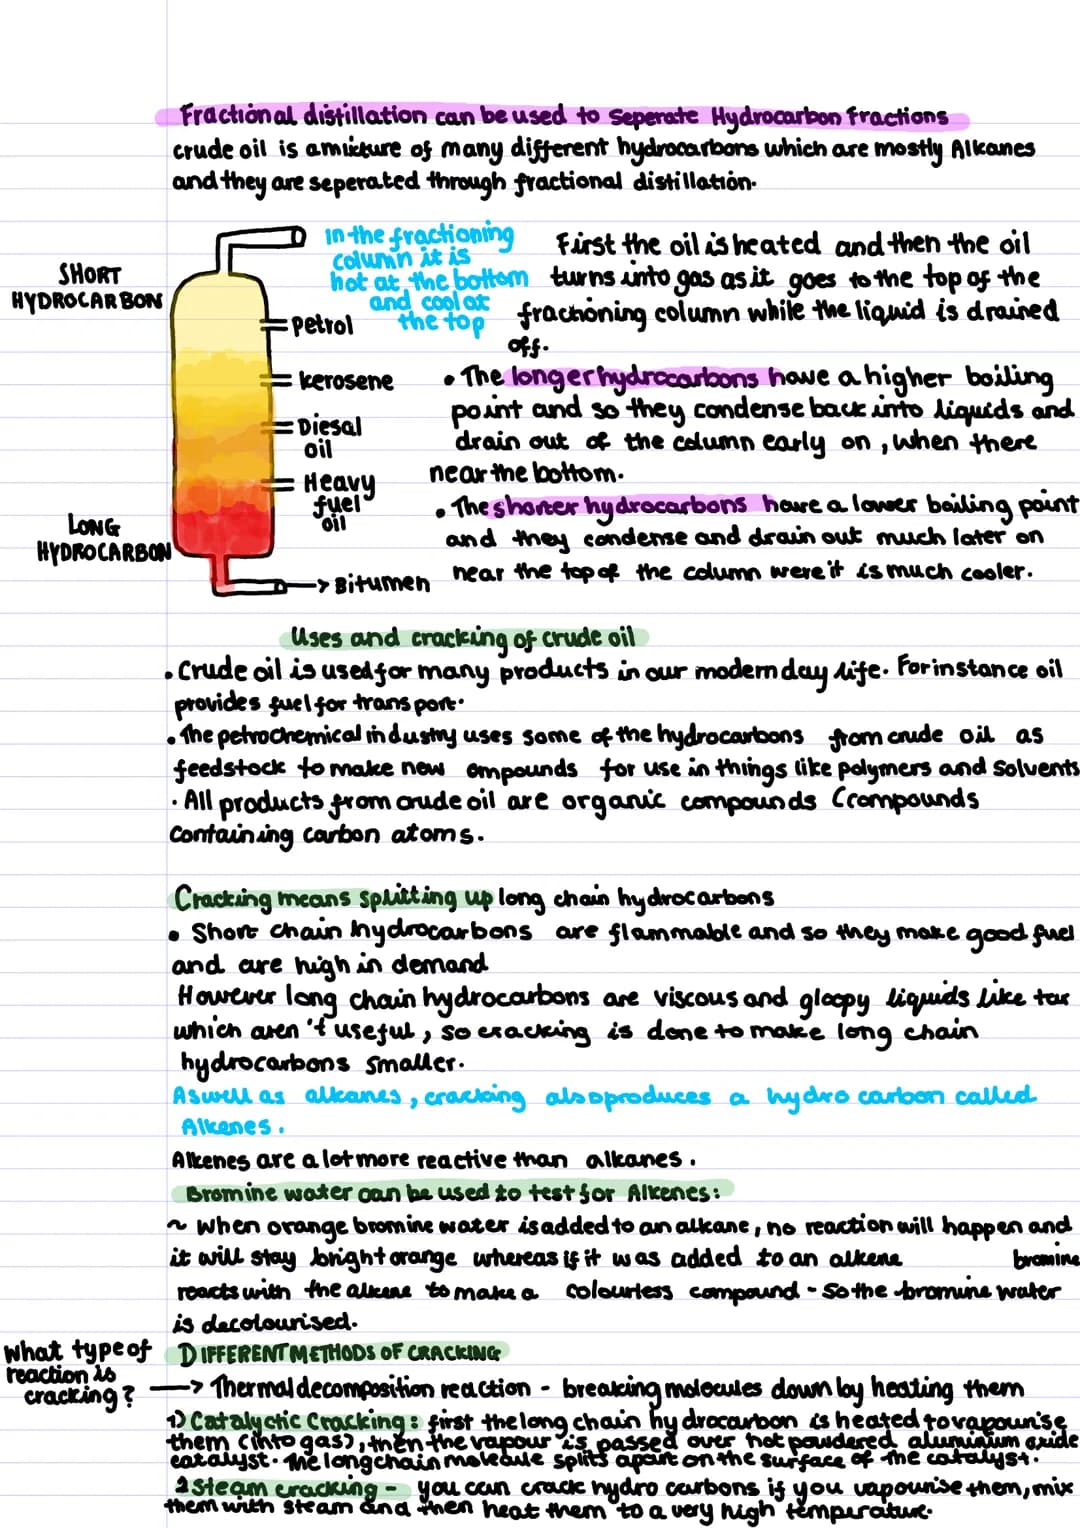 Fractional distillation can be used to Seperate Hydrocarbon fractions
crude oil is a mixture of many different hydrocarbons which are mostly Alkanes
and they are seperated through fractional distillation.
SHORT
HYDROCARBON
In the fractioning
column it is
hot at the bottom
and cool at
the top
Petrol
kerosene
Diesal
oil
Heavy
fuel
oil
LONG
HYDROCARBON
Bitumen
First the oil is heated and then the oil
turns into gas as it goes to the top of the
fractioning column while the liquid is drained
off.
• The longer hydrocarbons have a higher boiling
point and so they condense back into liquids and
drain out of the column early on, when there
near the bottom.
• The shorter hydrocarbons have a lower boiling point
and they condense and drain out much later on
near the top of the column were it is much cooler.
Uses and cracking of crude oil
• Crude oil is used for many products in our modern day life. For instance oil
provides fuel for transport.
• The petrochemical industry uses some of the hydrocarbons from crude oil as
feedstock to make new ompounds for use in things like polymers and Solvents
• All products from crude oil are organic compounds (compounds
containing carbon atoms.
Cracking means splitting up long chain hydrocarbons
• Short chain hydrocarbons are flammable and so they make good fuel
and are high in demand
However long chain hydrocarbons are viscous and gloopy liquids like tar
which aren't useful, so cracking is done to make long chain
hydrocarbons smaller.
Aswell as alkanes, cracking also produces a hydro carbon called
Alkenes.
Alkenes are a lot more reactive than alkanes.
Bromine water can be used to test for Alkenes:
~ When orange bromine water is added to an alkane, no reaction will happen and
it will stay bright orange whereas if it was added to an alkene bromine
reacts with the alkene to make a colourless compound - So the bromine water
is decolourised.
What type of
reaction is
cracking?
DIFFERENT METHODS OF CRACKING
—> Thermal decomposition reaction - breaking molecules down by heating them
1) Catalyctic Cracking: first the long chain hydrocarbon is heated to vapourise
them (into gas), then the vapour is passed over hot powdered aluminium oxide
catalyst. The long chain molecule splits apart on the surface of the catalyst.
2 Steam cracking - you can crack hydro carbons if you vapourise them, mix
them with steam and then heat them to a very high temperature.